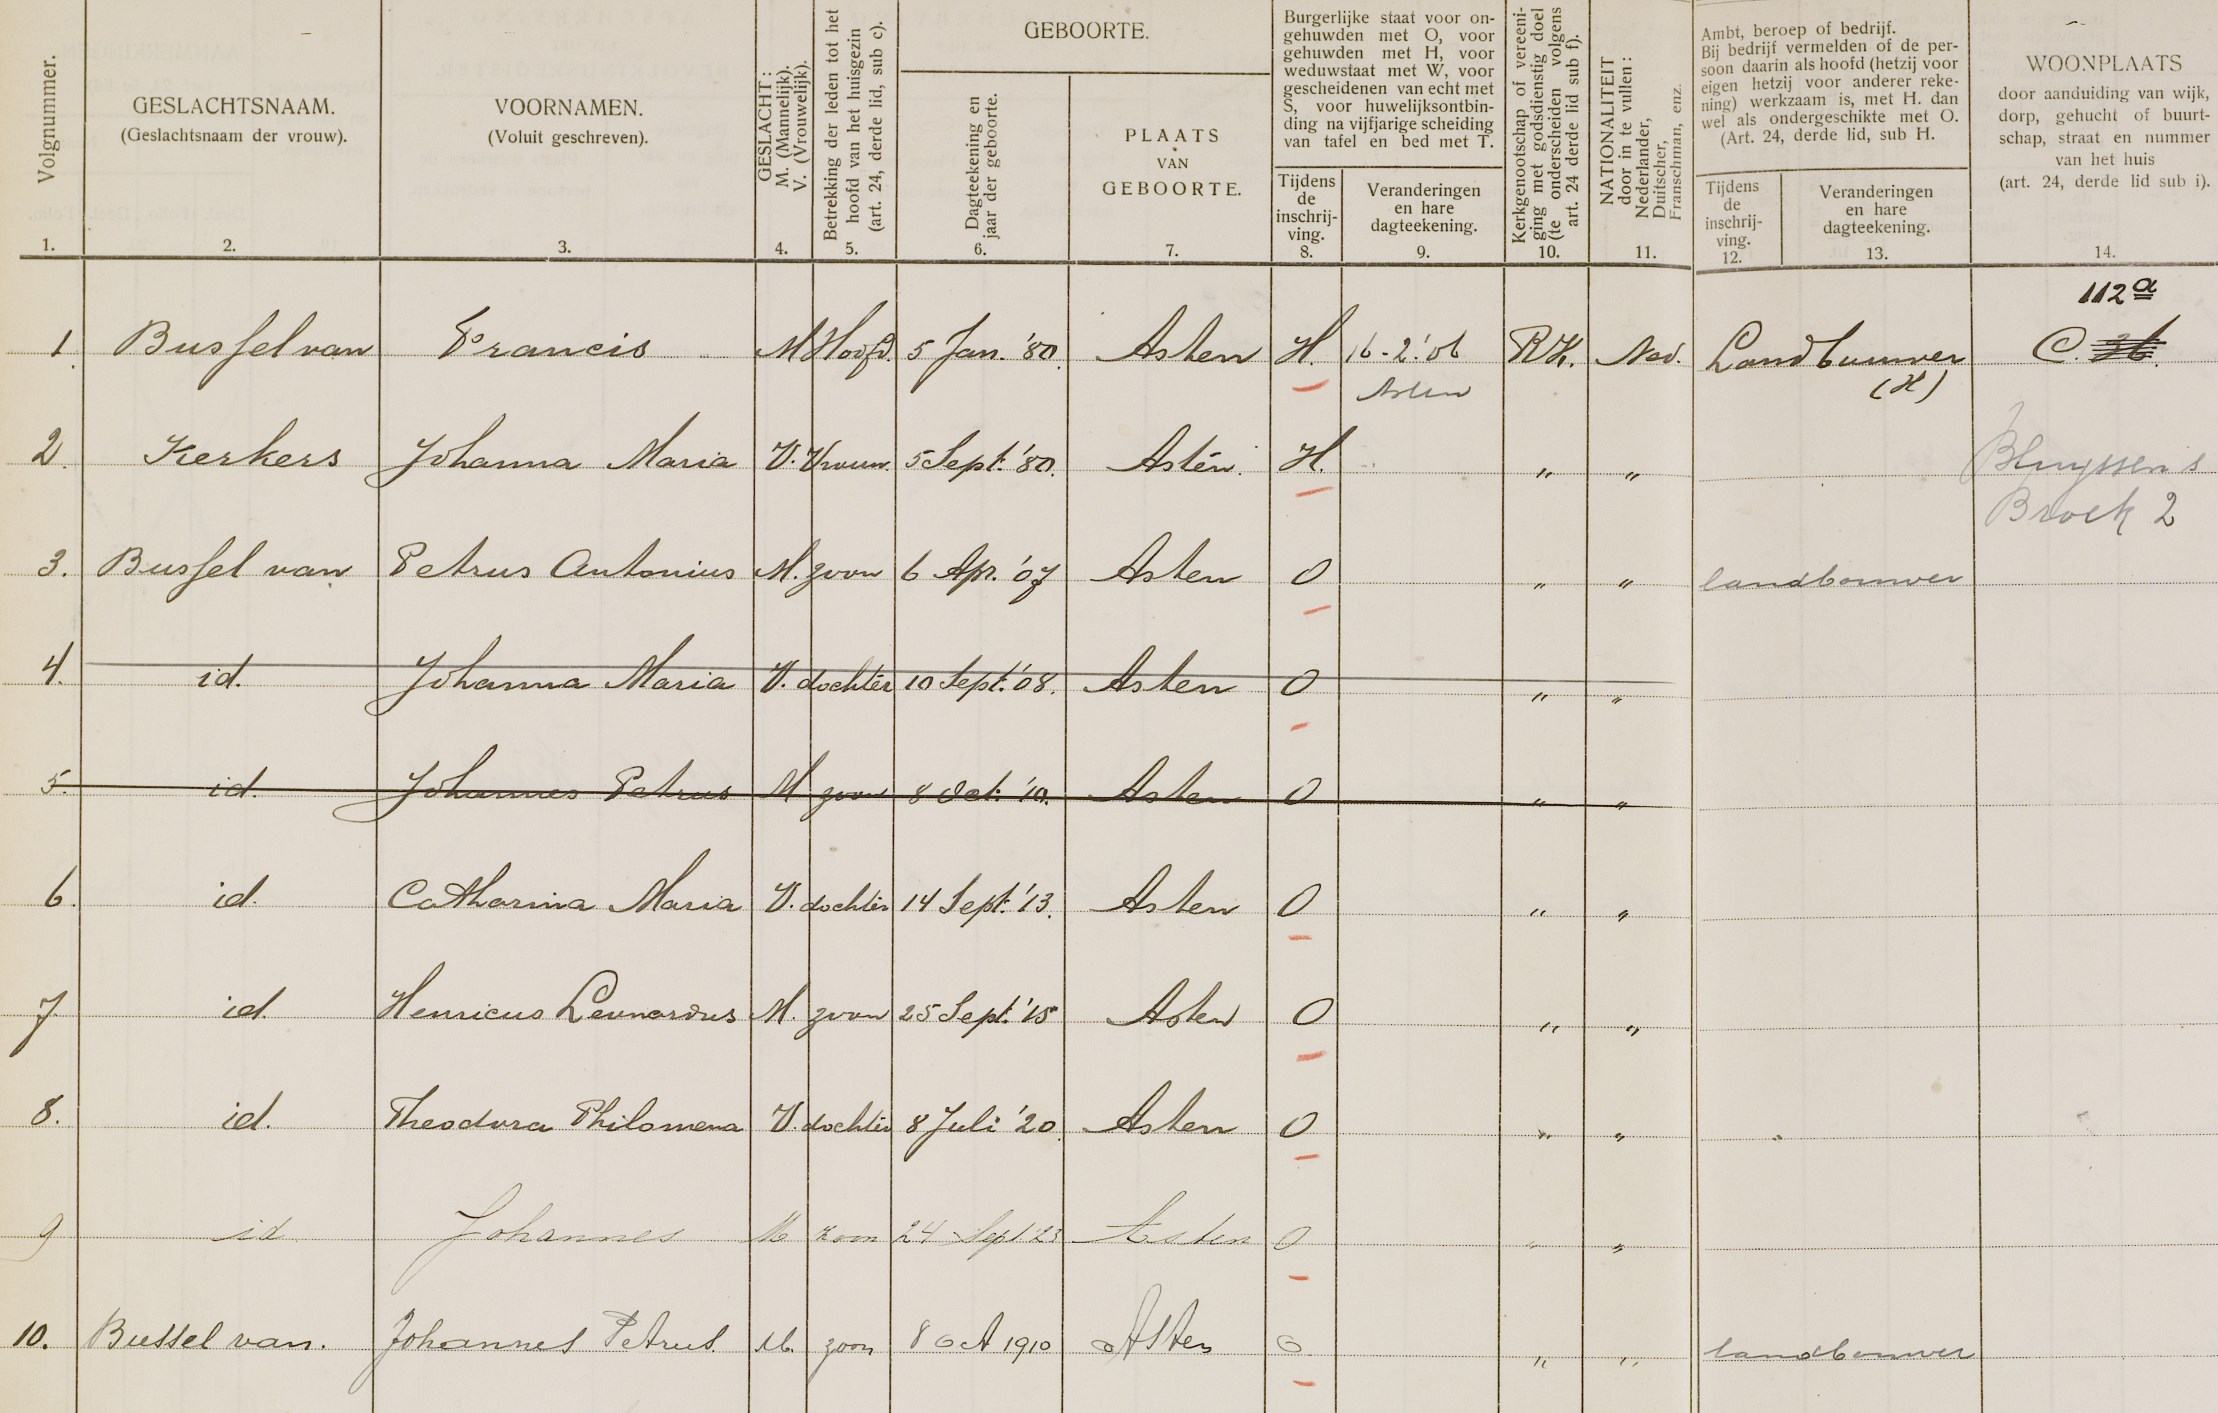 Volgnummer.
1.
GESLACHTSNAAM.
(Geslachtsnaam der vrouw).
2.
VOORNAMEN.
(Voluit geschreven).
3.
GESLACHT:
M. (Mannelijk).
V. (Vrouwelijk).
4.
Betrekking der leden tot het
hoofd van het huisgezin
(art. 24, derde lid, sub c).
5.
GEBOORTE.
Dagteekening en
jaar der geboorte.
6.
PLAATS
VAN
GEBOORTE.
7.
Burgerlijke staat voor on-
gehuwden met O, voor
gehuwden met H, voor
weduwstaat met W, voor
gescheidenen van echt met
S, voor huwelijksontbin-
ding na vijfjarige scheiding
van tafel en bed met T.
Tijdens
de
inschrij-
ving.
8.
Veranderingen
en hare
dagteekening.
9.
Kerkgenootschap of vereeni-
ging met godsdienstig doel
(te onderscheiden volgens
art. 24 derde lid sub f).
10.
NATIONALITEIT
door in te vullen:
Nederlander,
Duitscher,
Franschman, enz.
11.
Ambt, beroep of bedrijf.
Bij bedrijf vermelden of de per-
soon daarin als hoofd (hetzij voor
eigen hetzij voor anderer reke-
ning) werkzaam is, met H. dan
wel als ondergeschikte met O.
(Art. 24, derde lid, sub H.
Tijdens
de
inschrij-
ving.
12.
Veranderingen
en hare
dagteekening.
13.
WOONPLAATS
door aanduiding van wijk,
dorp, gehucht of buurt-
schap, straat en nummer
van het huis
(art. 24, derde lid sub i).
14.
112a
1. Bussel van Francis M Hoofd. 5 Jan. '80. Asten H. 16-2.'06 R.K. Ned. Landbouwer C. 36.
Asten (H)
2. Kerkers Johanna Maria V. Vrouw. 5 Sept. '80. Asten. H. " " Bluyssen's
Broek 2
3. Bussel van Petrus Antonius M. zoon 6 Apr. '07 Asten O " " landbouwer
4. id. Johanna Maria V. dochter 10 Sept. '08. Asten O " "
5. id. Johannes Petrus M zoon 8 Oct. '10. Asten O " "
6. id. Catharina Maria V. dochter 14 Sept. '13. Asten O " "
7. id. Henricus Leonardus M. zoon 25 Sept. '15 Asten O " "
8. id. Theodora Philomena V. dochter 8 Juli '20. Asten O " "
9 id Johannes M zoon 24 Sept '23 Asten O " "
10. Bussel van. Johannes Petrus. M. zoon 8 Oct 1910 Asten O " " landbouwer